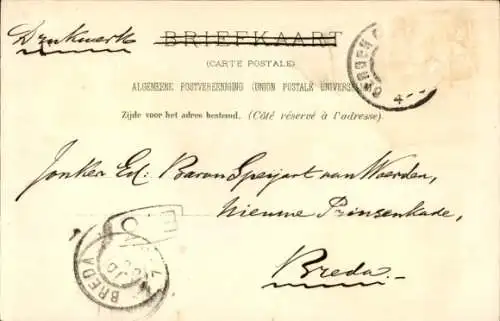 Drukwerk
BRIEFKAART
(CARTE POSTALE)
ALGEMEENE POSTVEREENIGING (UNION POSTALE UNIVERSELLE)
Zijde voor het adres bestemd. (Côté réservé à l'adresse).
Jonker Ed: Baron Speyart van Woerden,
Nieuwe Prinsenkade,
Breda.
BREDA